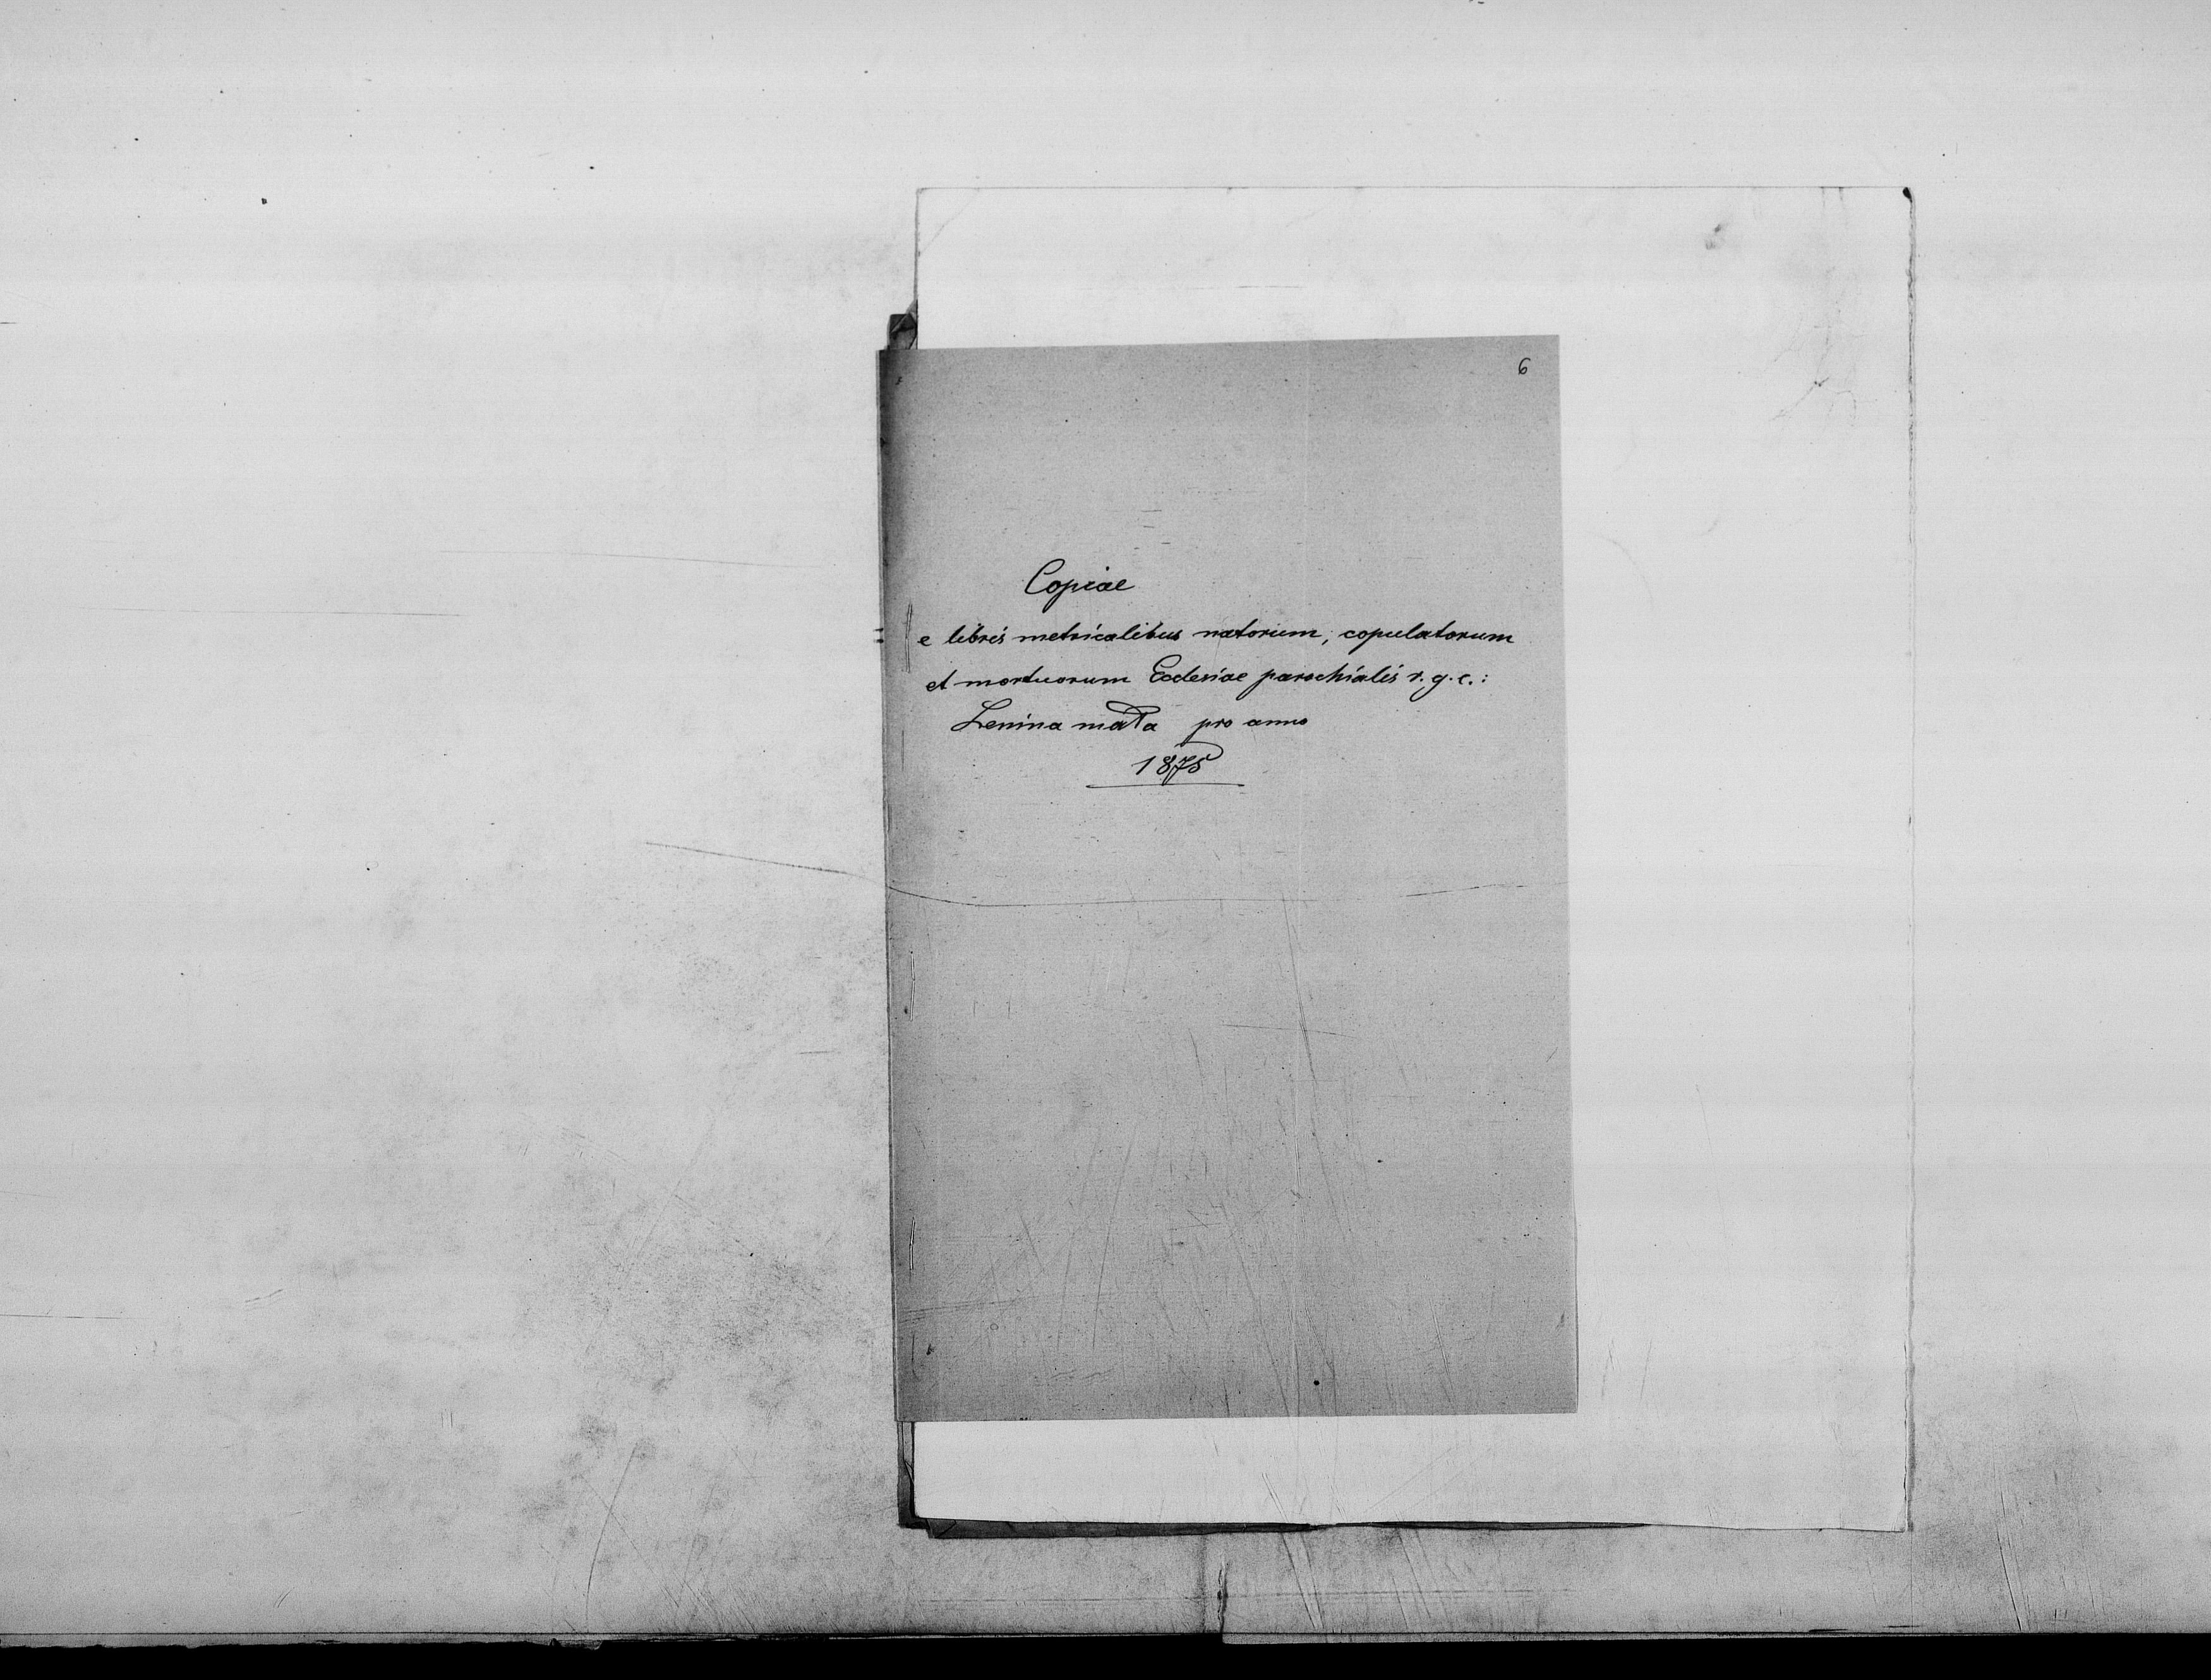 6
Copiae
e libris metricalibus natorum, copulatorum
et mortuorum Ecclesiae parochialis r. g. c.:
Lenina mała pro anno
1875